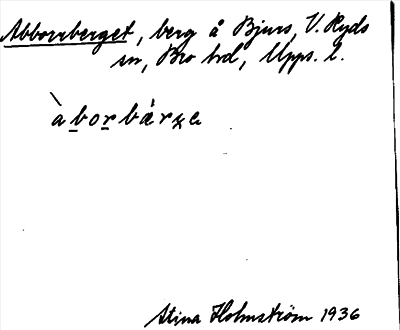 Abborrberget, berg å Bjurs, V. Ryds
sn, Bro hd, Upps. l.
àborbárɣe
Stina Holmström 1936